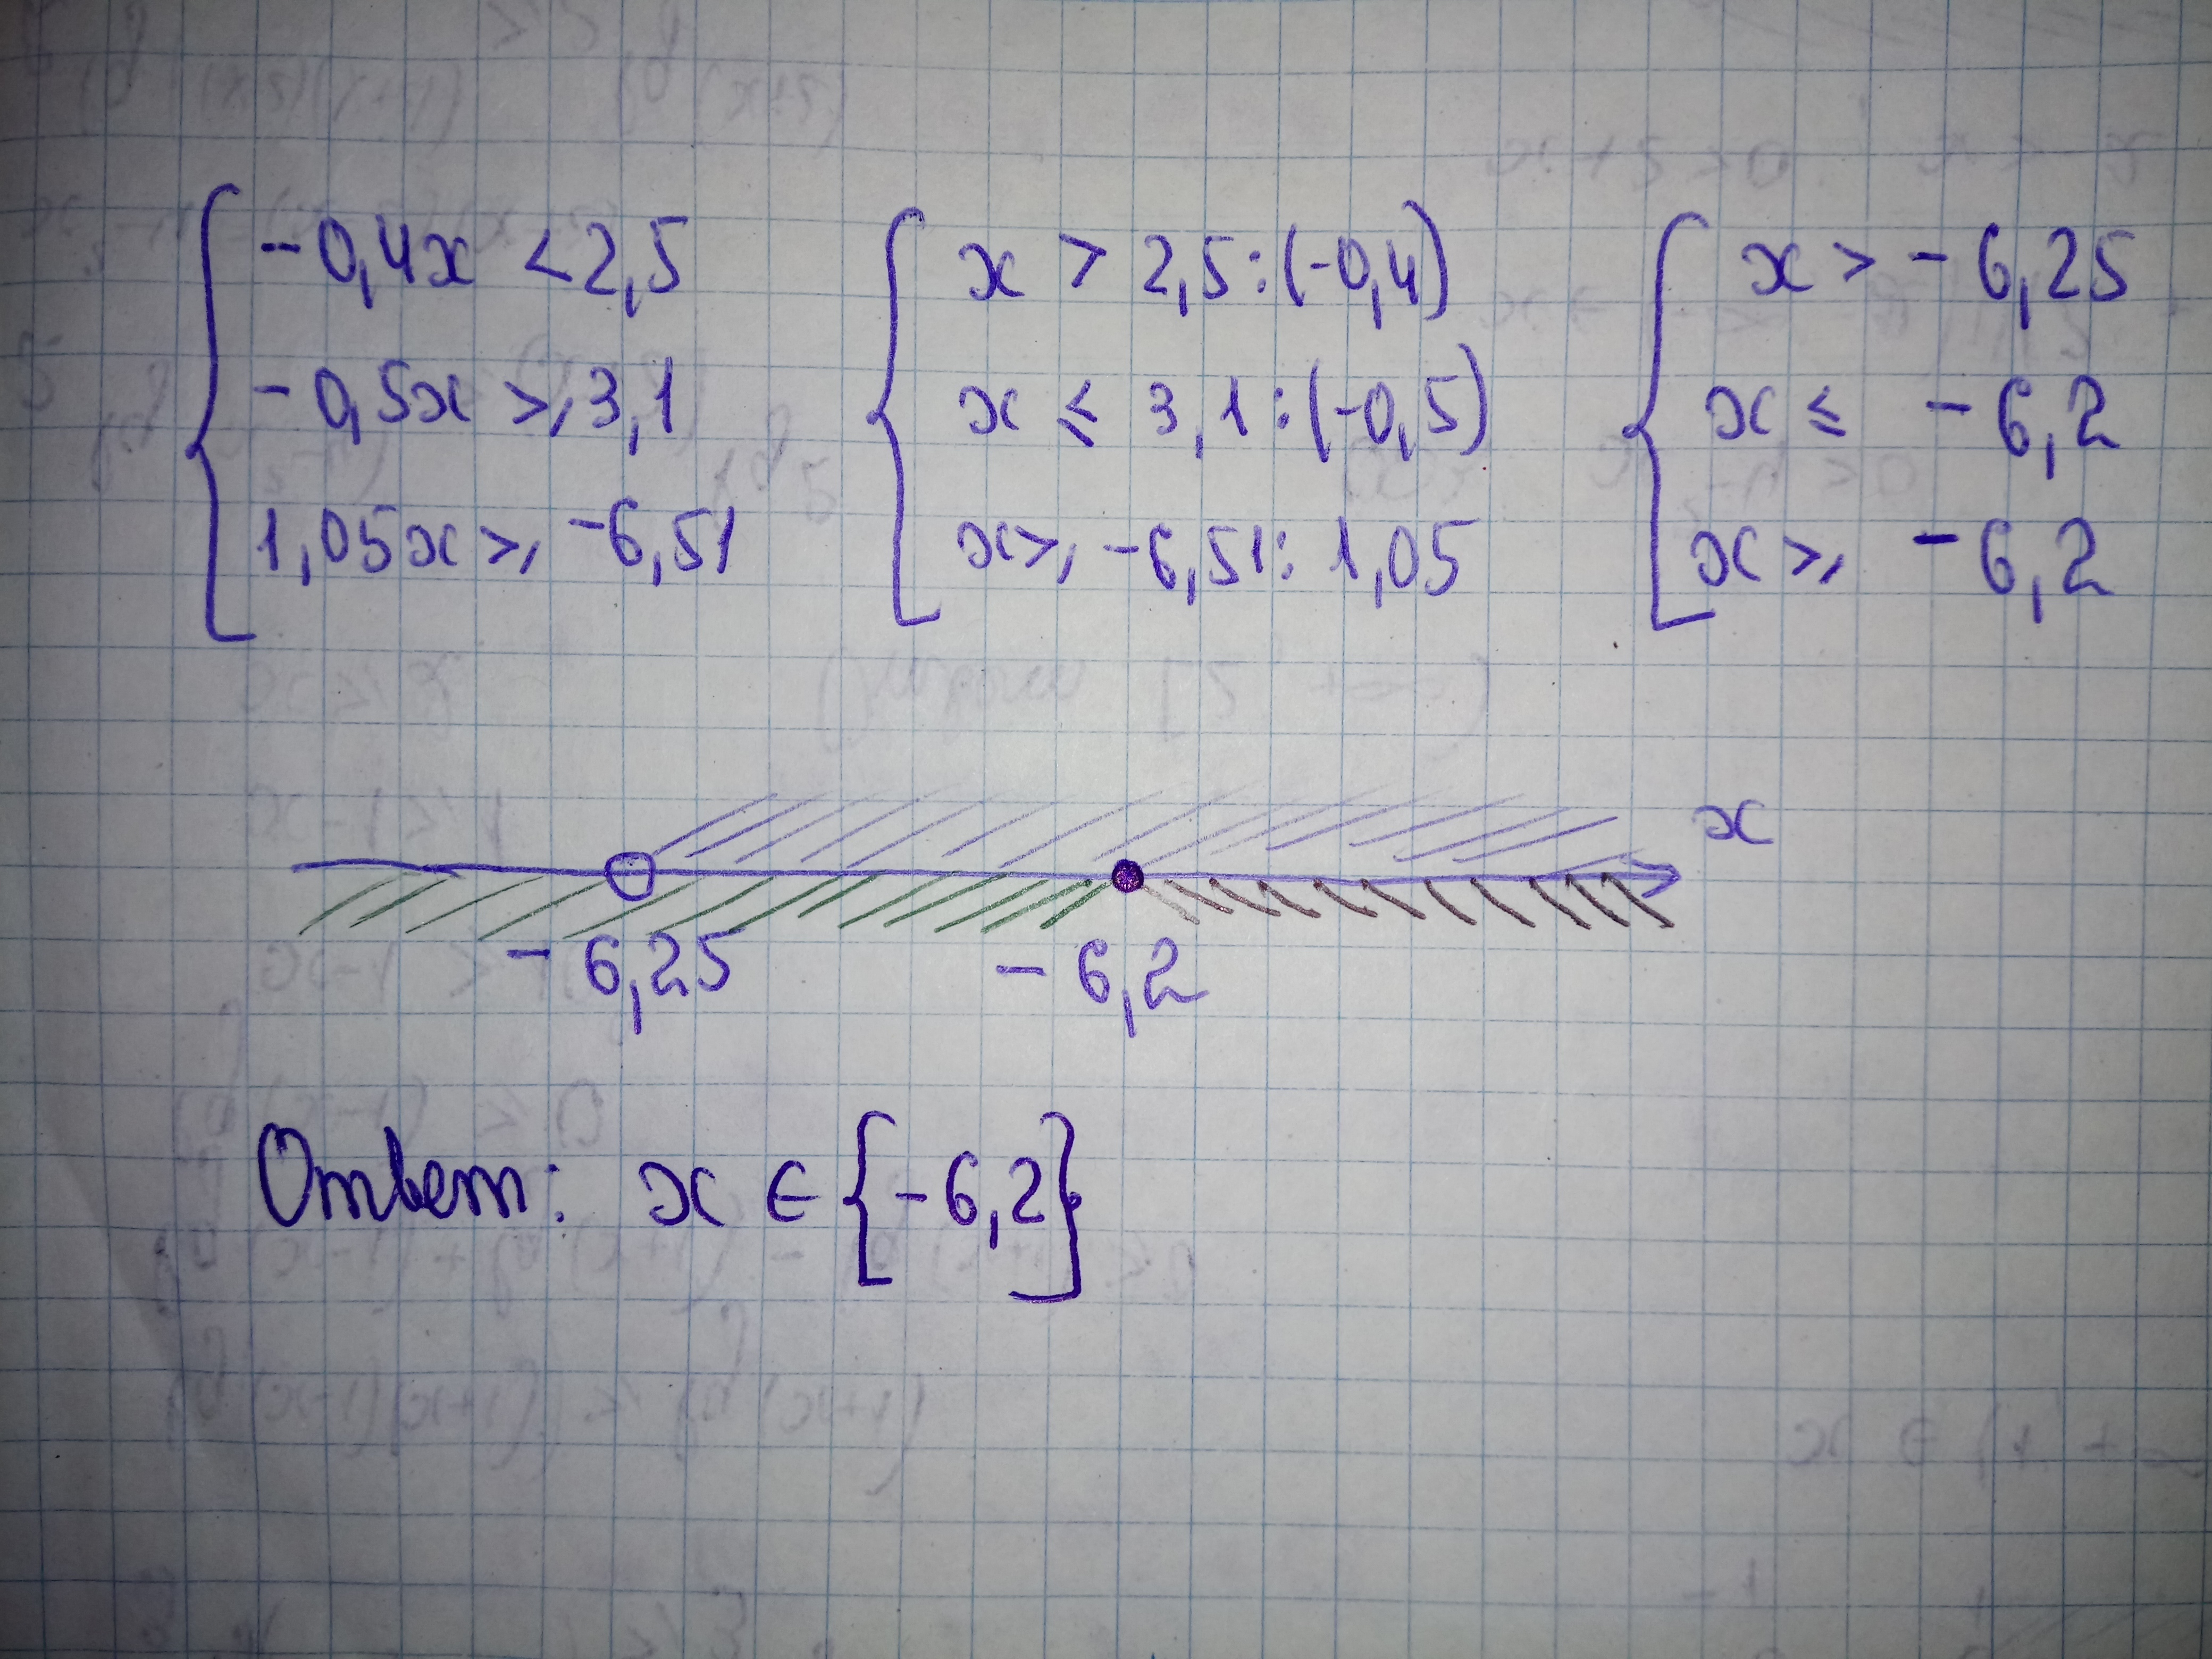 -0,4x < 2,5
-0,5x ⩾ 3,1
1,05x ⩾ -6,51
x > 2,5:(-0,4)
x ≤ 3,1:(-0,5)
x ⩾ -6,51:1,05
x > -6,25
x ≤ -6,2
x ⩾ -6,2
x
-6,25 -6,2
Ответ: x ∈ {-6,2}